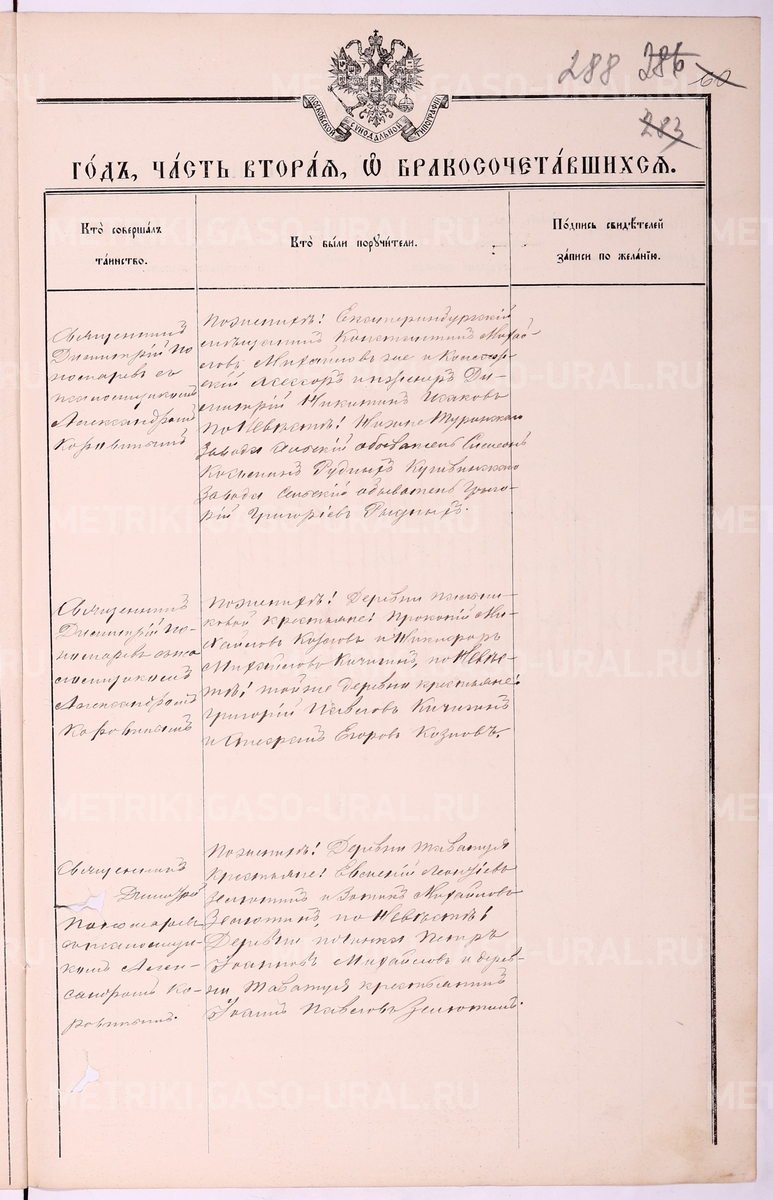 288 286 60
283
МОСКОВСКОЙ СѴНОДАЛЬНОЙ ТИПОГРАФІИ
ГО́ДЪ, ЧА́СТЬ ВТОРА́Я, Ѽ БРАКОСОЧЕТА́ВШИХСЯ.
Кто̀ соверша́лъ
та́инство.
Кто̀ бы́ли порꙋчи́тели.
По́дпись свидѣ́телей
за́писи по жела́нїю.
Священникъ
Димитрій По-
номаревъ съ
псаломщикомъ
Александромъ
Коровинымъ
По женихѣ: Екатеринбургскій
мѣщанинъ Константинъ Михай-
ловъ
Ассесоръ инженеръ Ди-
митрій Никитинъ
по невѣстѣ: Нижне Туринскаго
завода сельскій обыватель
Козьминъ Рудныхъ Кушвинскаго
завода сельскій обыватель Григо-
рій Григоріевъ Рудныхъ.
Священникъ
Димитрій По-
номаревъ съ пса-
ломщикомъ
Александромъ
Коровинымъ
По женихѣ: Деревни
крестьяне: Прокопій Ми-
хайловъ Козловъ и Никифоръ
Михайловъ Кичигинъ, по невѣс-
тѣ: той же деревни крестьяне:
Григорій Павловъ Кичигинъ
и Егоровъ Козловъ.
Священникъ
Димитрій
Пономаревъ
съ псаломщи-
комъ Алек-
сандромъ Ко-
ровинымъ.
По женихѣ: Деревни Таватуя
крестьяне: Евсевій Леонтіевъ
Зелютинъ и Михайловъ
Зелютинъ, по невѣстѣ:
Деревни починка Петръ
Іоанновъ Михайловъ и дерев-
ни Таватуя крестьянинъ
Іоаннъ Павловъ Зелютинъ.
METRIKI.GASO-URAL.RU